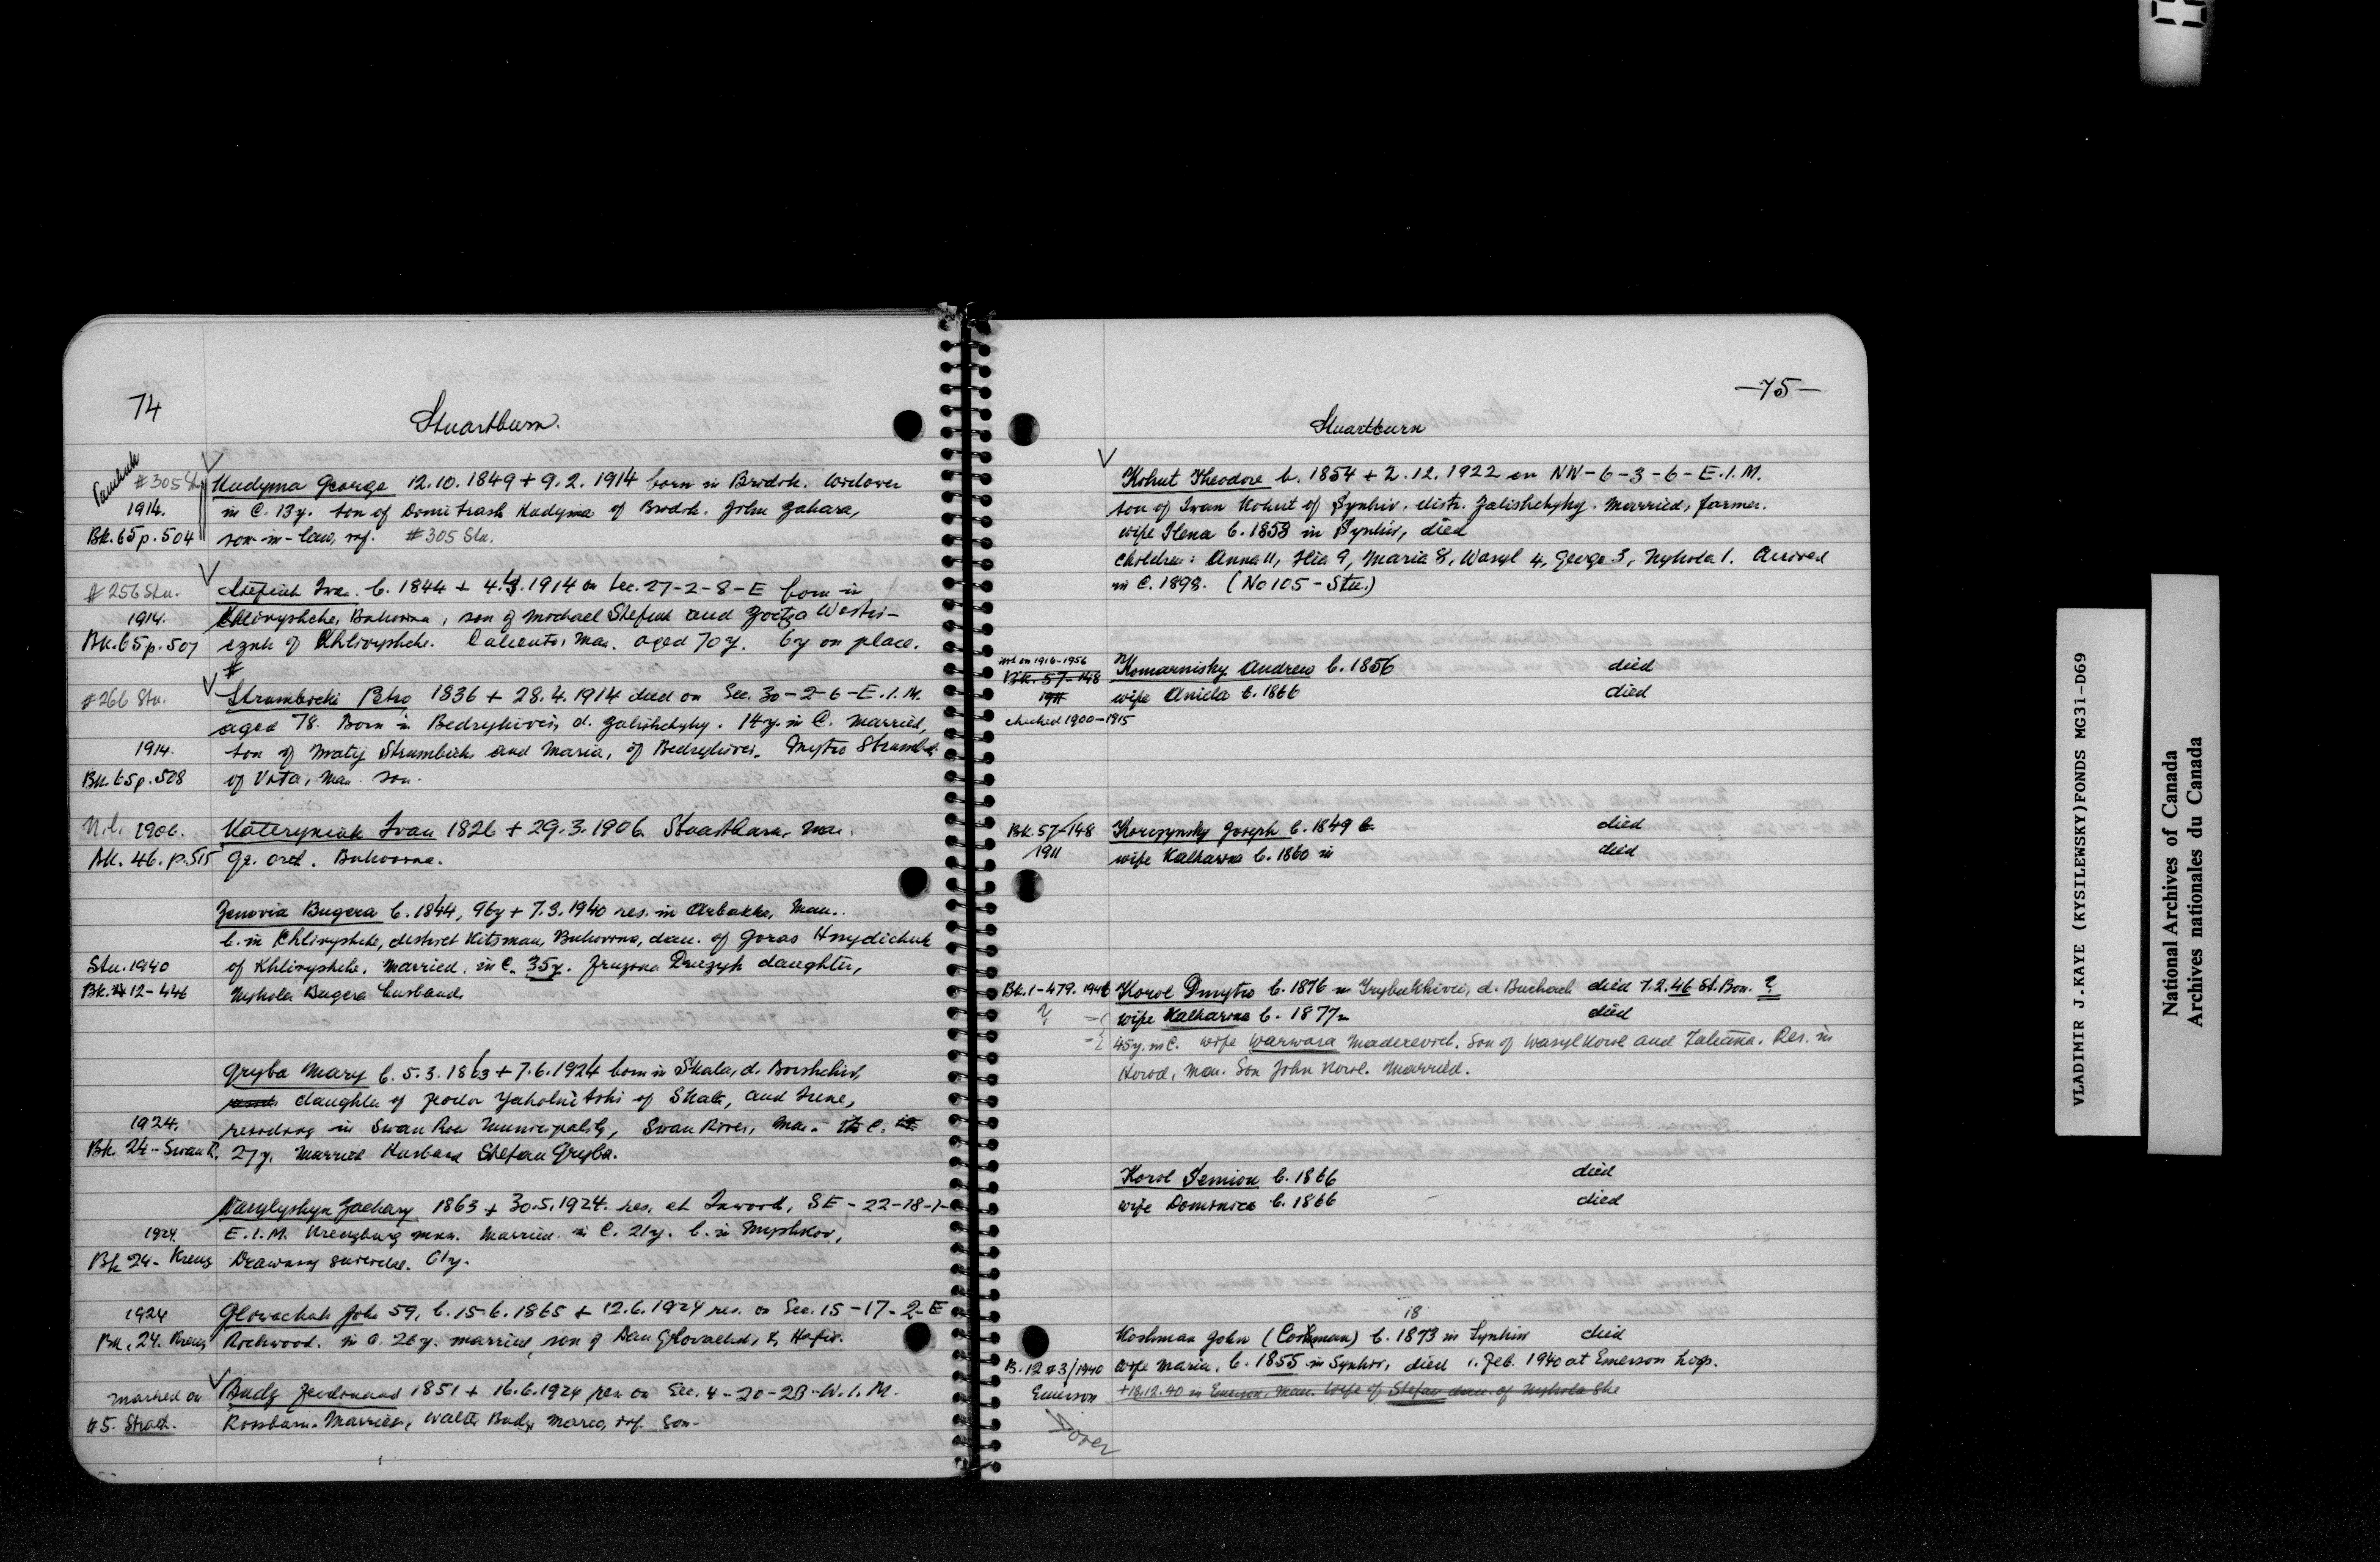 74
Stuartburn.
Panchuk
#305 Stu
1914.
Bk. 65 p. 504
Kudyma George 12.10.1849 + 9.2.1914 born in Brodok. Widower
in C. 13y. son of Dometrash Kudyma of Brodok. John Zahara,
son-in-law, inf. #305 Stu.
#256 Stu.
1914.
Bk. 65 p. 507
Stefiuk Ivan. b. 1844 + 4. .1914 on Sec. 27-2-8-E born in
Khlivyshche, Bukovina, son of Michael Stefiuk and Zoitza
cznk of Khlivyshche. Caliento, Man. aged 70 y. 6y on place.
#
#266 Stu.
1914.
Bk. 65 p. 508
Strumbicki Petro 1836 + 28.4.1914 died on Sec. 30-2-6-E.1.M.
aged 78. Born in Bedrykivci, d. Zalishchyky. 14y. in C. Married,
son of Matij Strumbicki and Maria, of Bedrykivci. Mytro Strumbicki
of Vita, Man. son.
N.l. 1906.
Bk. 46. p. 515
Kateryniuk Ivan 1826 + 29.3.1906. Stuartburn, Man.
Gr. ord. Bukovina.
Stu. 1940
Bk. 12-446
Zenovia Bugera b. 1844, 96y + 7.3.1940 res. in Arbakka, Man..
b. in Khlivyshche, district Kitsman, Bukovina, dau. of Goras Hnydichuk
of Khlivyshche. Married, in C. 35y. Fruzina daughter,
Mykola Bugera husband.
1924.
Bk. 24-Swan R.
Gryba Mary b. 5.3.1863 + 7.6.1924 born in Skala, d. Borshchiv,
daughter of Feodor of Skala, and Irene,
residing in Swan River Municipality, Swan River, Man. in C.
27y. Married Husband Stefan Gryba.
1924.
Bk 24- Kreuz
Vasylyshyn Zachary 1863 + 30.5.1924. res. at Inwood, SE-22-18-1-
E.1.M. Kreuzburg mun. Married in C. 21y. b. in Myshkov,
Drawning suicide. 61y.
1924
Bk. 24. Kreuz
Glowachuk John 59, b. 15.6.1865 + 12.6.1924 res. on Sec. 15-17-2-E
Rockwood. in C. 26y. married, son of Dan Glovachuk,
marked on
#5. Strath.
Budz Ferdinand 1851 + 16.6.1924 res. on Sec. 4-20-28-W.1.M.
Rossburn. Married, Walter Budz, inf. Son.
-75-
Stuartburn
Kohut Theodore b. 1854 + 2.12.1922 on NW-6-3-6-E.1.M.
son of Iwan Kohut of Synkiv. distr. Zalishchyky. Married, farmer.
wife Ilena b. 1858 in Synkiv, died
children: Anna 11, Ilia 9, Maria 8, Wasyl 4, George 3, Nykola 1. Arrived
in C. 1898. (No 105-Stu.)
not on 1916-1956
Bk. 57-148
1911
checked 1900-1915
Komarnisky Andrew b. 1856 died
wife Aniela b. 1866 died
Bk. 57-148
1911
Korczynsky Joseph b. 1849 died
wife Katharina b. 1860 in died
Bk. 1-479. 1946
?
Korol Dmytro b. 1876 in Trybukhivci, d. Buchach died 7.2.46 St. Bon. ?
wife Katharina b. 1877 in died
45y. in C. wife Warwara Maderevich. Son of Wasyl Korol and Tatiana. Res. in
, Man. Son John Korol. Married.
Korol Semion b. 1866 died
wife Dominica b. 1866 died
18
Koshman John (Coshman) b. 1873 in Synkiv died
B. 12 #3/1940
Emerson
wife Maria, b. 1855 in Synkiv, died 1. Feb. 1940 at Emerson hosp.
+18.12.40 in Emerson, Man. Wife of Stefan dau. of Mykola She
over
VLADIMIR J.KAYE (KYSILEWSKY)FONDS MG31-D69
National Archives of Canada
Archives nationales du Canada